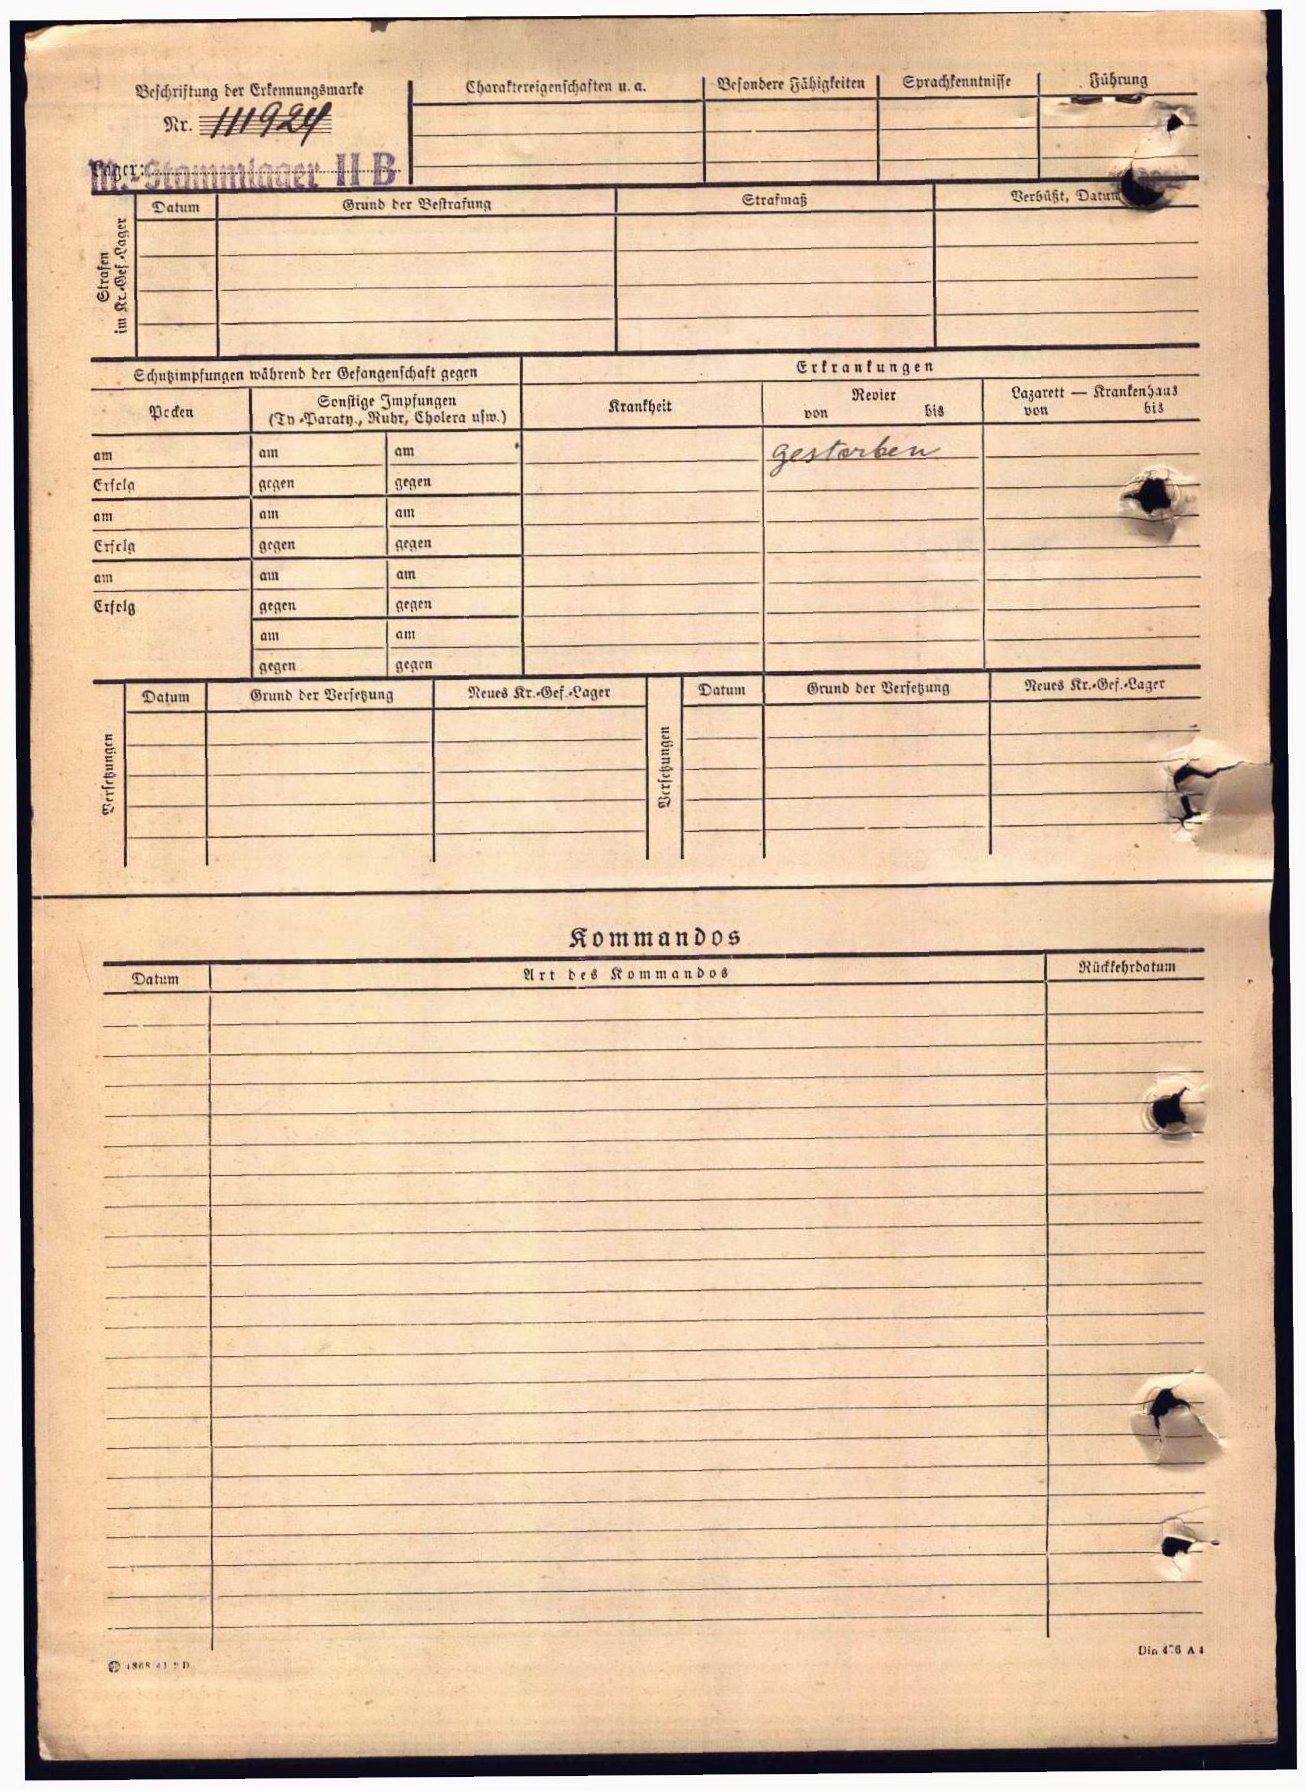 Beschriftung der Erkennungsmarke
Nr. 111924
Lager: M.-Stammlager II B
Charaktereigenschaften u. a.
Besondere Fähigkeiten
Sprachkenntnisse
Führung
Strafen
im Kr.-Gef.-Lager
Datum
Grund der Bestrafung
Strafmaß
Verbüßt, Datum
Schutzimpfungen während der Gefangenschaft gegen
Erkrankungen
Pocken
Sonstige Impfungen
(Ty.-Paraty., Ruhr, Cholera usw.)
Krankheit
Revier
von bis
Lazarett — Krankenhaus
von bis
am am am gestorben
Erfolg gegen gegen
am am am
Erfolg gegen gegen
am am am
Erfolg gegen gegen
am am
gegen gegen
Versetzungen
Datum
Grund der Versetzung
Neues Kr.-Gef.-Lager
Versetzungen
Datum
Grund der Versetzung
Neues Kr.-Gef.-Lager
Kommandos
Datum
Art des Kommandos
Rückkehrdatum
Din 476 A 4